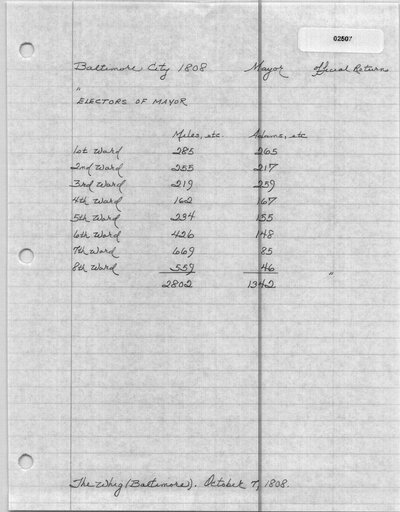 02507
Baltimore City 1808 Mayor Official Return
"
ELECTORS OF MAYOR
Miles, etc. Adams, etc.
1st Ward 285 265
2nd Ward 255 217
3rd Ward 219 259
4th Ward 162 167
5th Ward 234 155
6th Ward 426 148
7th Ward 669 85
8th Ward 559 46 "
2802 1342
The Whig (Baltimore). October 7, 1808.